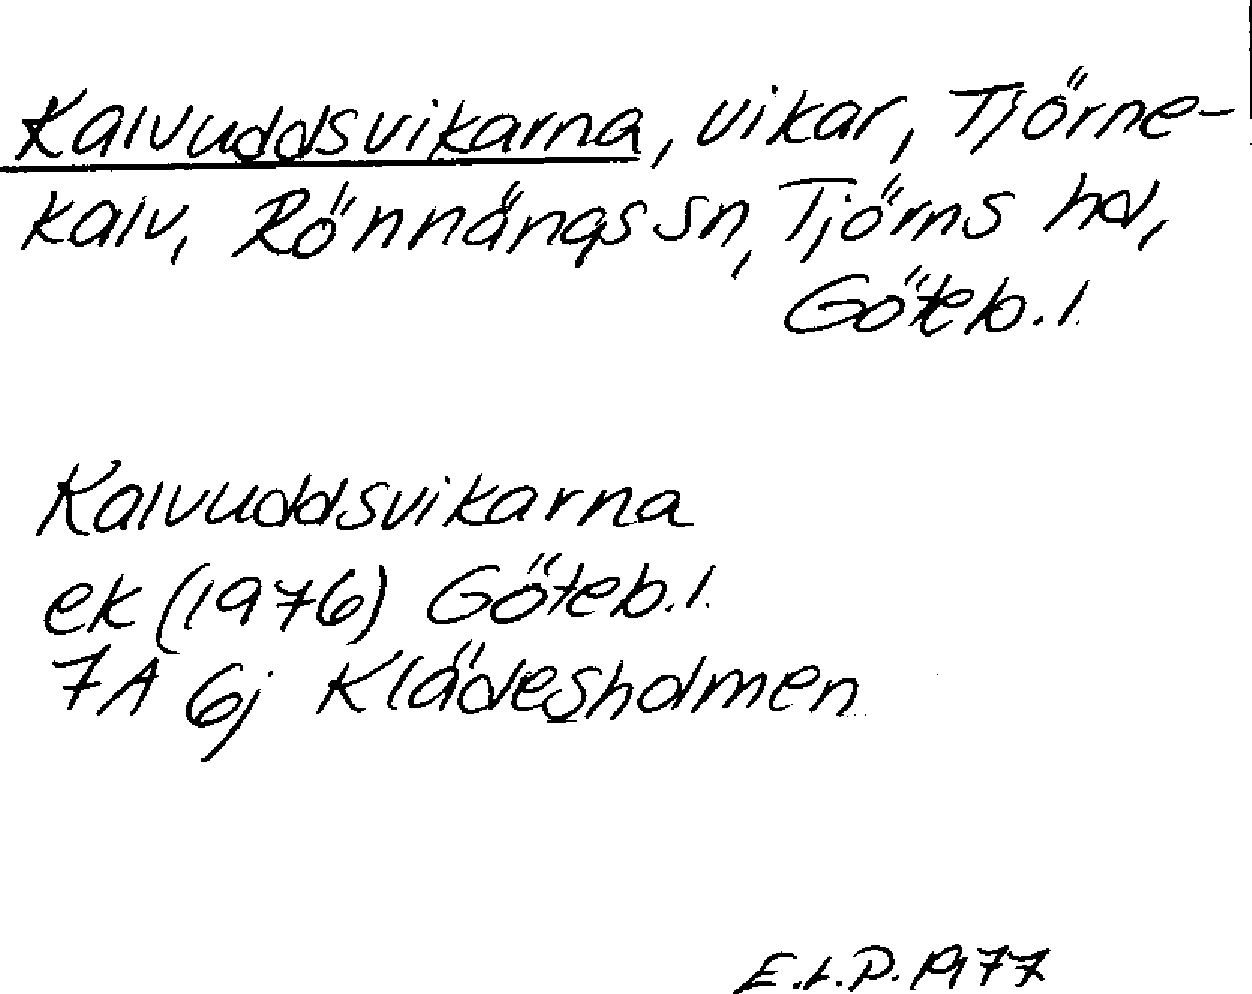 Kalvuddsvikarna, vikar, Tjörne-
kalv, Rönnängs sn, Tjörns hd,
Göteb. l.
Kalvuddsvikarna
ek (1976) Göteb. l.
7A 6j Klädesholmen
E.L.P. 1977